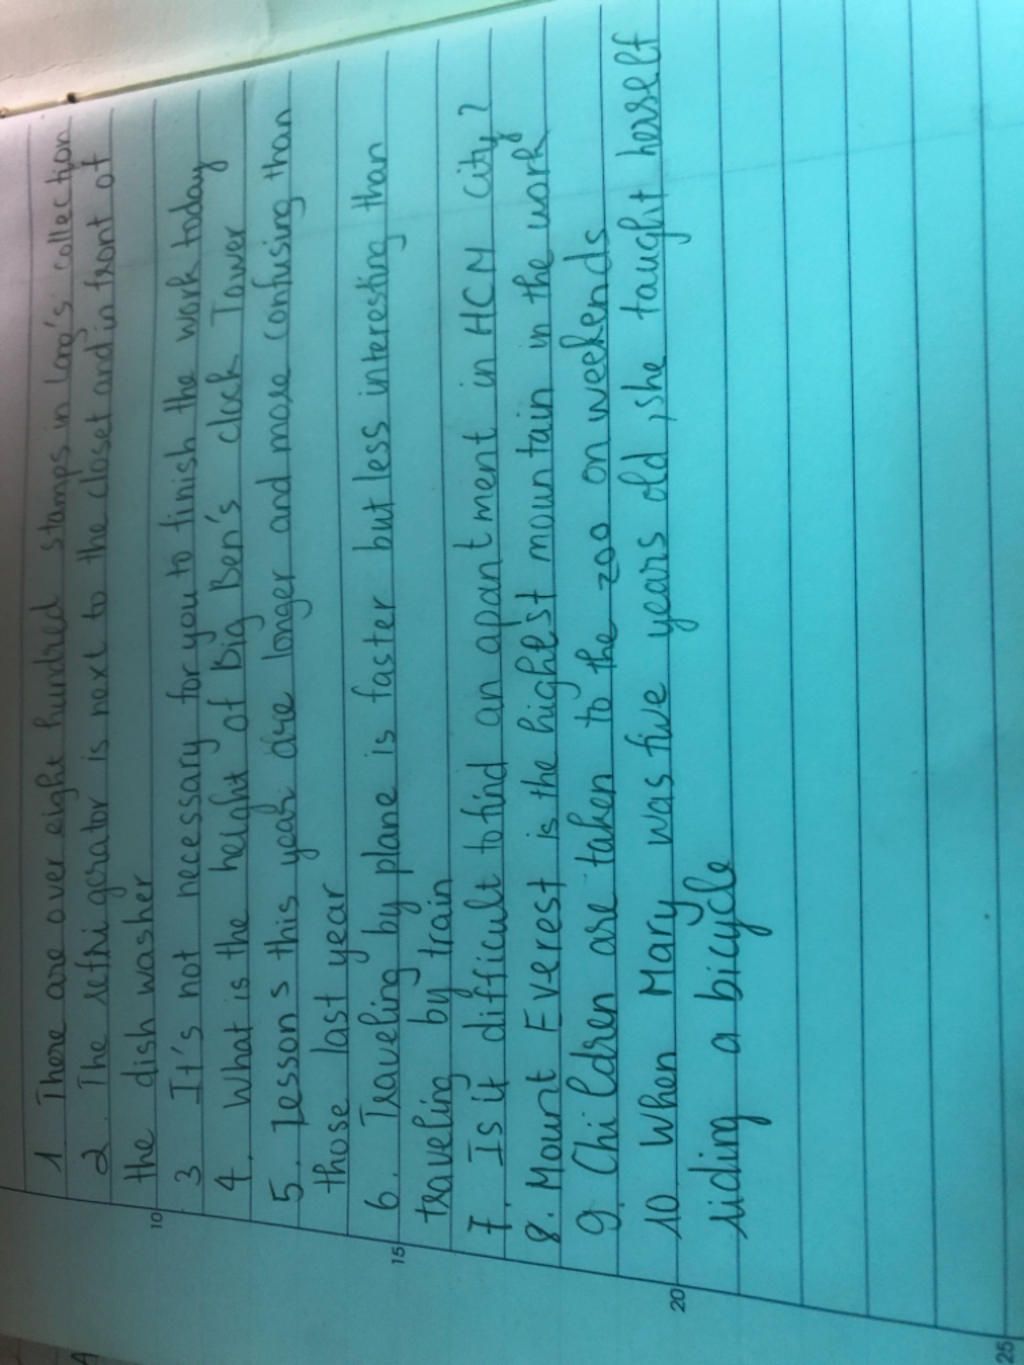 1 There are over eight hundred stamps in Long's collection
2. The refrigerator is next to the closet and in front of
the dish washer
3 It's not necessary for you to finish the work today
4. What is the height of Big Ben's clock Tower
5. Lessons this year are longer and more confusing than
those last year
6. Traveling by plane is faster but less interesting than
traveling by train
7. Is it difficult to find an apantment in HCM city?
8. Mount Everest is the highest mountain in the work
9. Children are taken to the zoo on weekends
10 When Mary was five years old, she taught herself
riding a bicycle
10
15
20
25